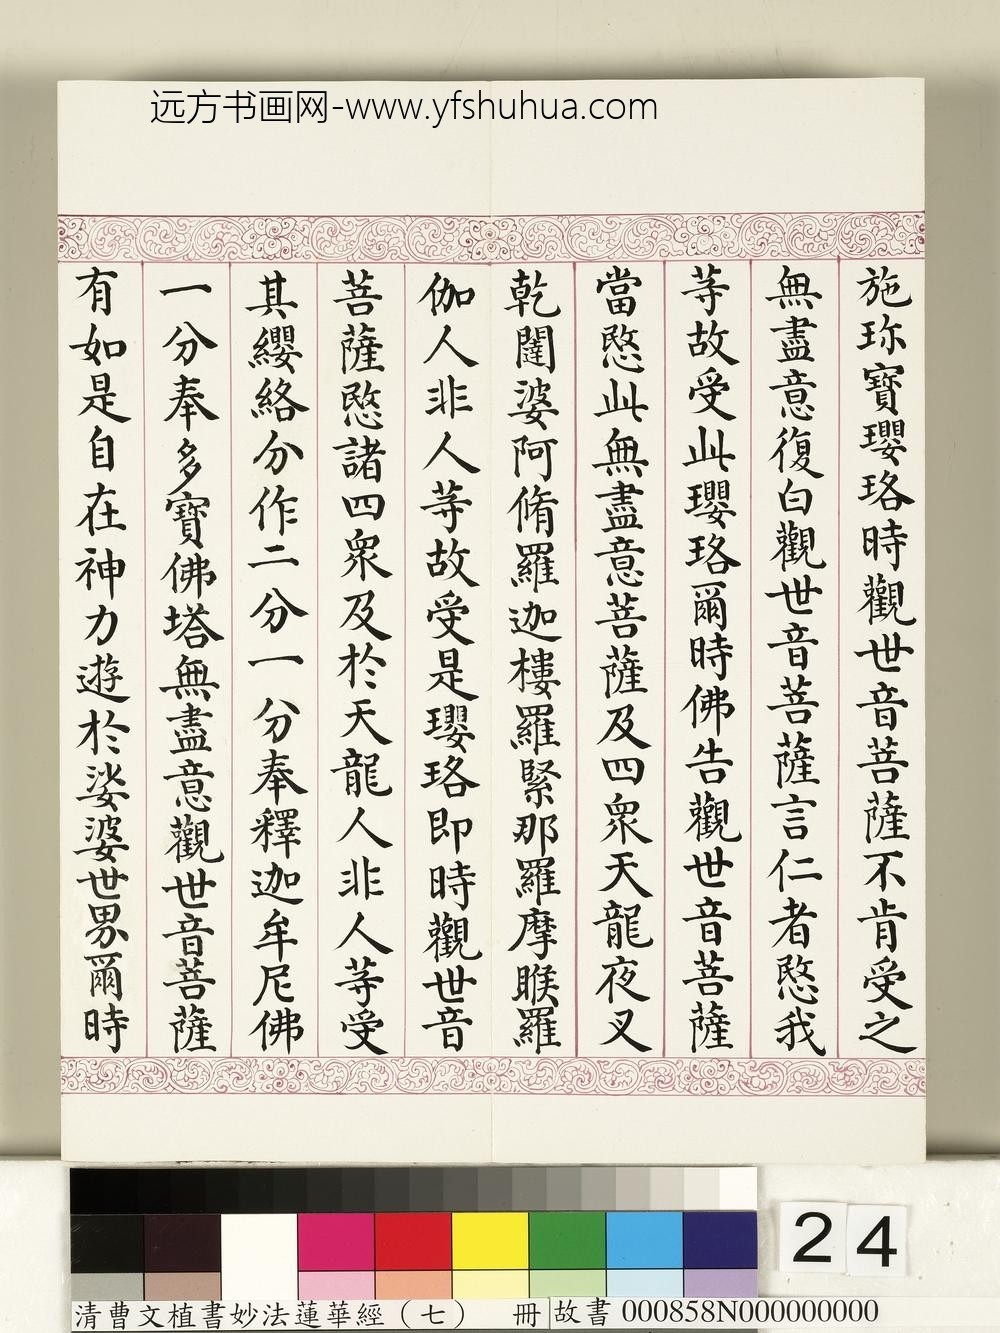 远方书画网-www.yfshuhua.com
施珎寶瓔珞時觀世音菩薩不肯受之
無盡意復白觀世音菩薩言仁者愍我
等故受此瓔珞爾時佛告觀世音菩薩
當愍此無盡意菩薩及四眾天龍夜叉
乾闥婆阿脩羅迦樓羅緊那羅摩睺羅
伽人非人等故受是瓔珞即時觀世音
菩薩愍諸四眾及於天龍人非人等受
其纓絡分作二分一分奉釋迦牟尼佛
一分奉多寶佛塔無盡意觀世音菩薩
有如是自在神力遊於娑婆世界爾時
24
清曹文植書妙法蓮華經（七） 冊 故書 000858N000000000